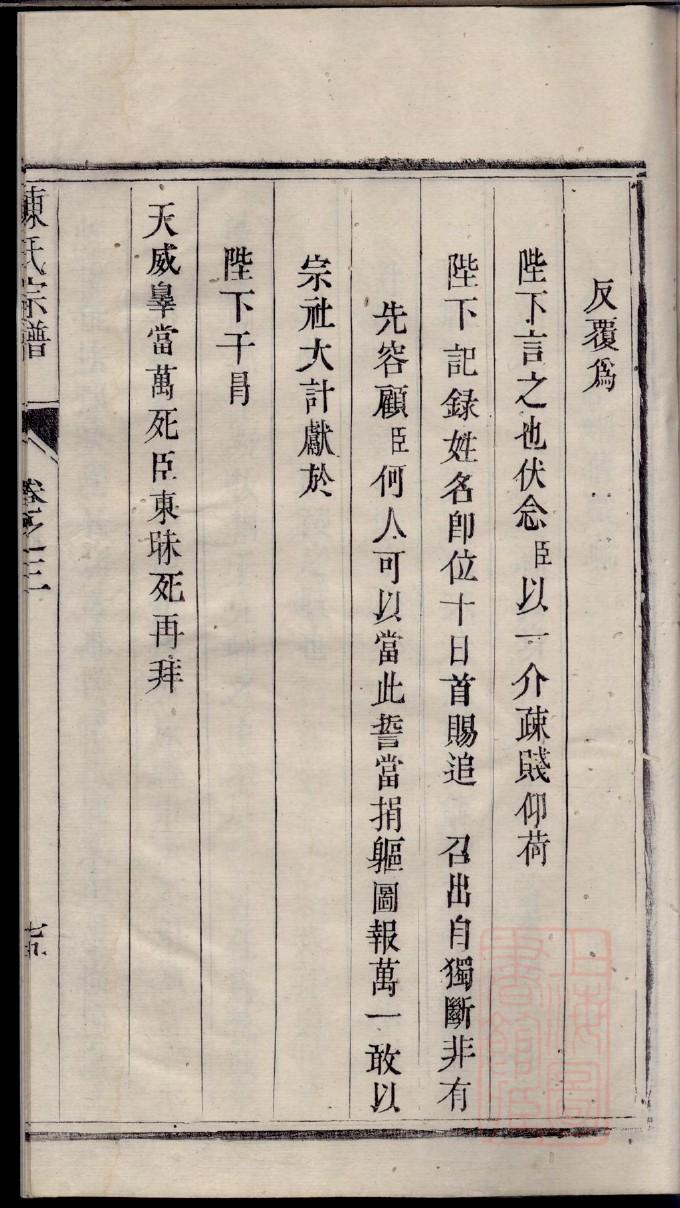 反覆爲
陛下言之也伏念臣以一介疎賤仰荷
陛下記録姓名卽位十日首賜追　召出自獨斷非有
先容顧臣何人可以當此誓當捐軀圖報萬一敢以
宗社大計獻於
陛下干冐
天威辠當萬死臣東昧死再拜
陳氏宗譜
卷之三
上海圖書館藏